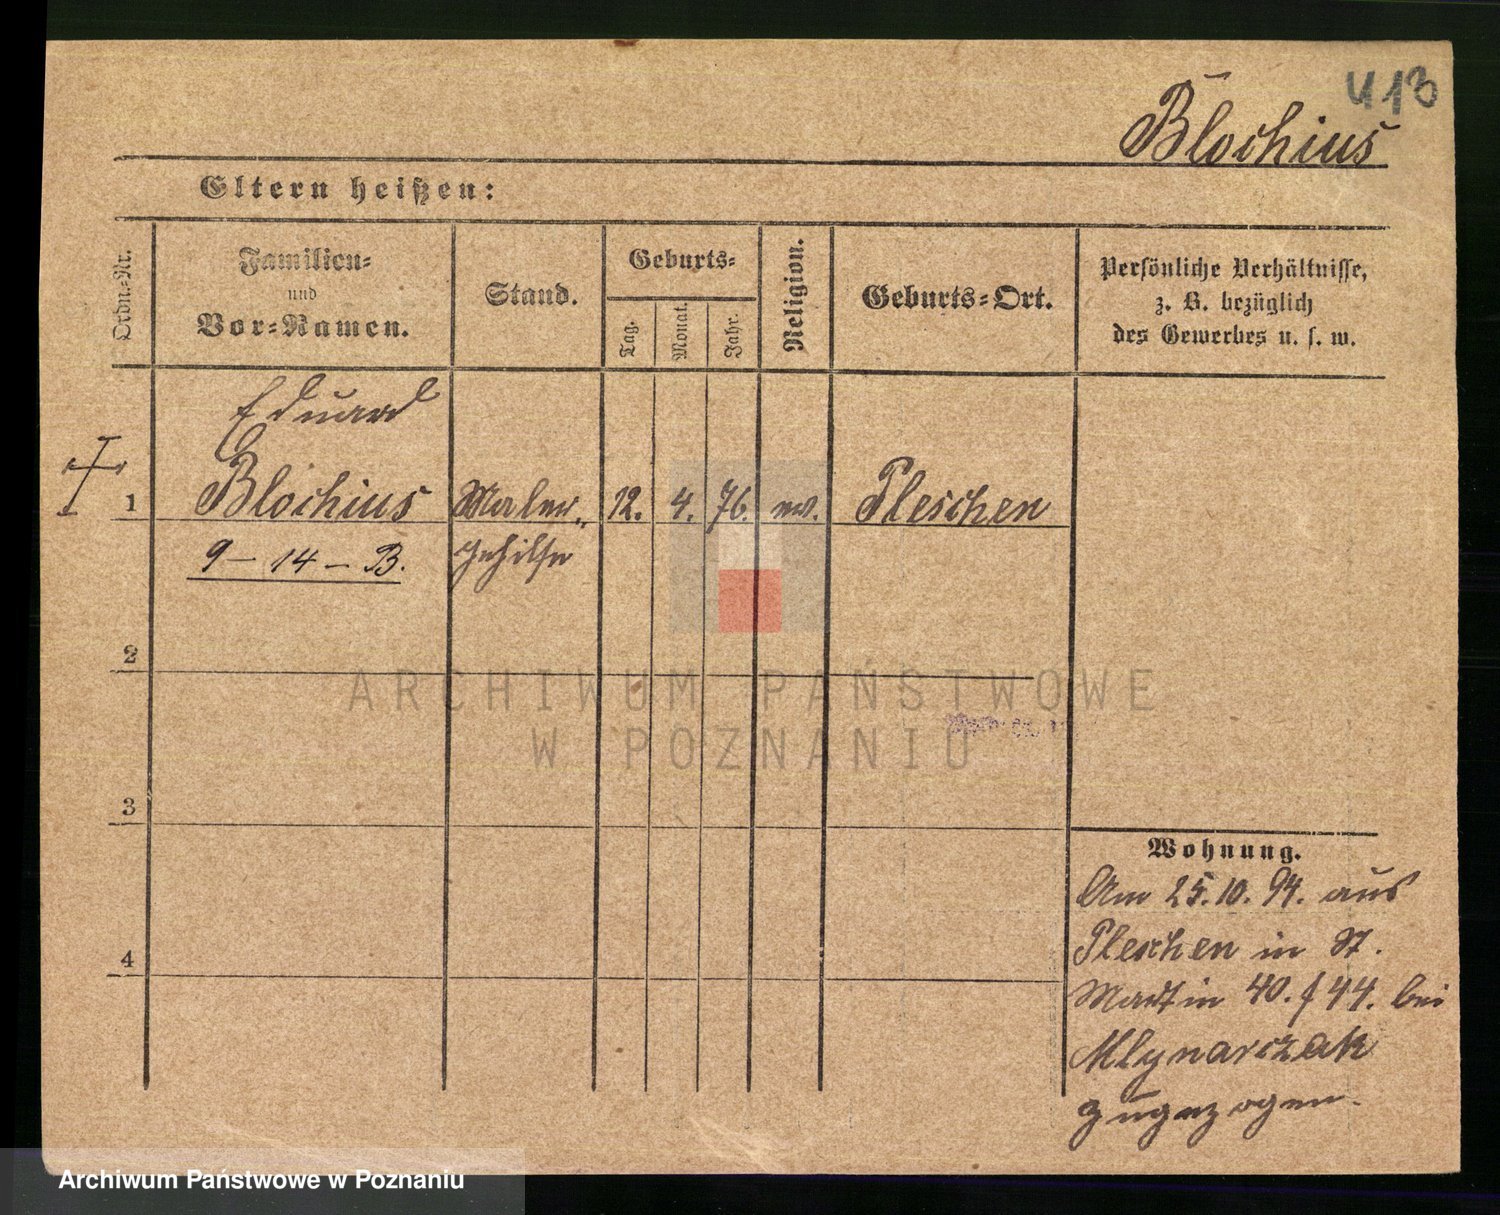 413
Blochius
Eltern heißen:
Ordn.-Nr.
Familien-
und
Vor-Namen.
Stand.
Geburts-
Tag.
Monat.
Jahr.
Religion.
Geburts-Ort.
Persönliche Verhältnisse,
z. B. bezüglich
des Gewerbes u. s. w.
Eduard
1 Blochius Maler- 12. 4. 76. ev. Pleschen
9 - 14 - B. gehilfe
2
3
4
Wohnung.
Am 25.10.94. aus
Pleschen in St.
Martin 40. / 44. bei
Mlynarczak
zugezogen.
ARCHIWUM PAŃSTWOWE
W POZNANIU
Archiwum Państwowe w Poznaniu